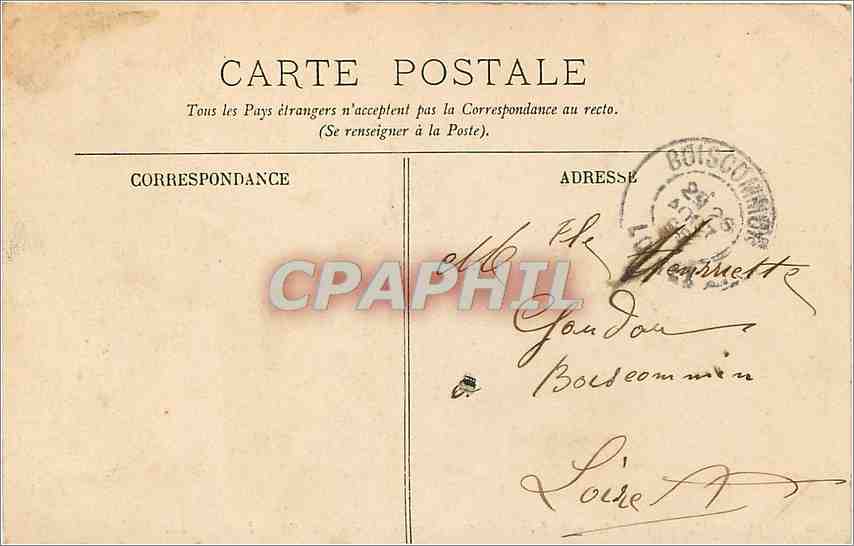 CARTE POSTALE
Tous les Pays étrangers n'acceptent pas la Correspondance au recto.
(Se renseigner à la Poste).
CORRESPONDANCE
ADRESSE
BOISCOMMUN
CPAPHIL
Mlle Henriette
Goudou
à Boiscommun
Loire